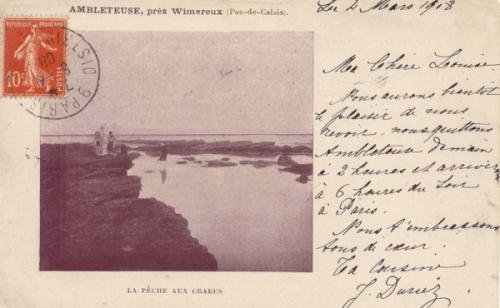 AMBLETEUSE, près Wimereux (Pas-de-Calais).
Le 2 Mars 1908
REPUBLIQUE FRANÇAISE
10c
POSTES
PARIS
DISTRI
Ma Chère Léonise,
Nous aurons bientôt
le plaisir de nous
revoir, nous quittons
Ambleteuse demain
à 2 heures et arrivons
à 6 heures du soir
à Paris.
Nous t'embrassons
tous de cœur.
Ta cousine
J.
LA PÊCHE AUX CRABES